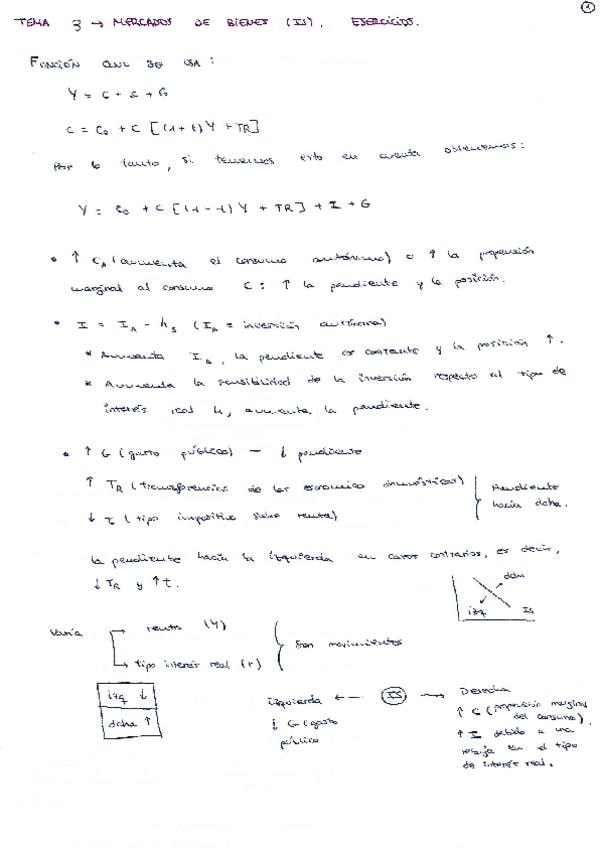 1
TEMA 3 → MERCADOS DE BIENES (IS). EJERCICIOS.
FUNCIÓN QUE SE USA:
Y = C + I + G
C = C₀ + C [(1+t)Y + TR]
Por lo tanto, si tenemos esto en cuenta obtenemos:
Y = C₀ + C [(1-t)Y + TR] + I + G
• ↑ C_A (aumenta el consumo autónomo) o ↑ la propensión
marginal al consumo C: ↑ la pendiente y la posición.
• I = I_A - h_s (I_A = inversión autónoma)
* Aumenta I_a, la pendiente es constante y la posición ↑.
* Aumenta la sensibilidad de la inversión respecto al tipo de
interés real h, aumenta la pendiente.
• ↑ G (gasto público) - ↓ pendiente
↑ TR (transferencias de las economías domésticas)
↓ t (tipo impositivo sobre renta)
Pendiente
hacia dcha.
la pendiente hacia la izquierda en casos contrarios, es decir,
↓ TR y ↑ t.
dcha
izq
IS
Varía
renta (Y)
tipo interés real (r)
Son movimientos
izq ↓
dcha ↑
izquierda ← IS → Derecha
↓ G (gasto
público)
↑ C (propensión marginal
del consumo).
↑ I debido a una
rebaja en el tipo
de interés real.